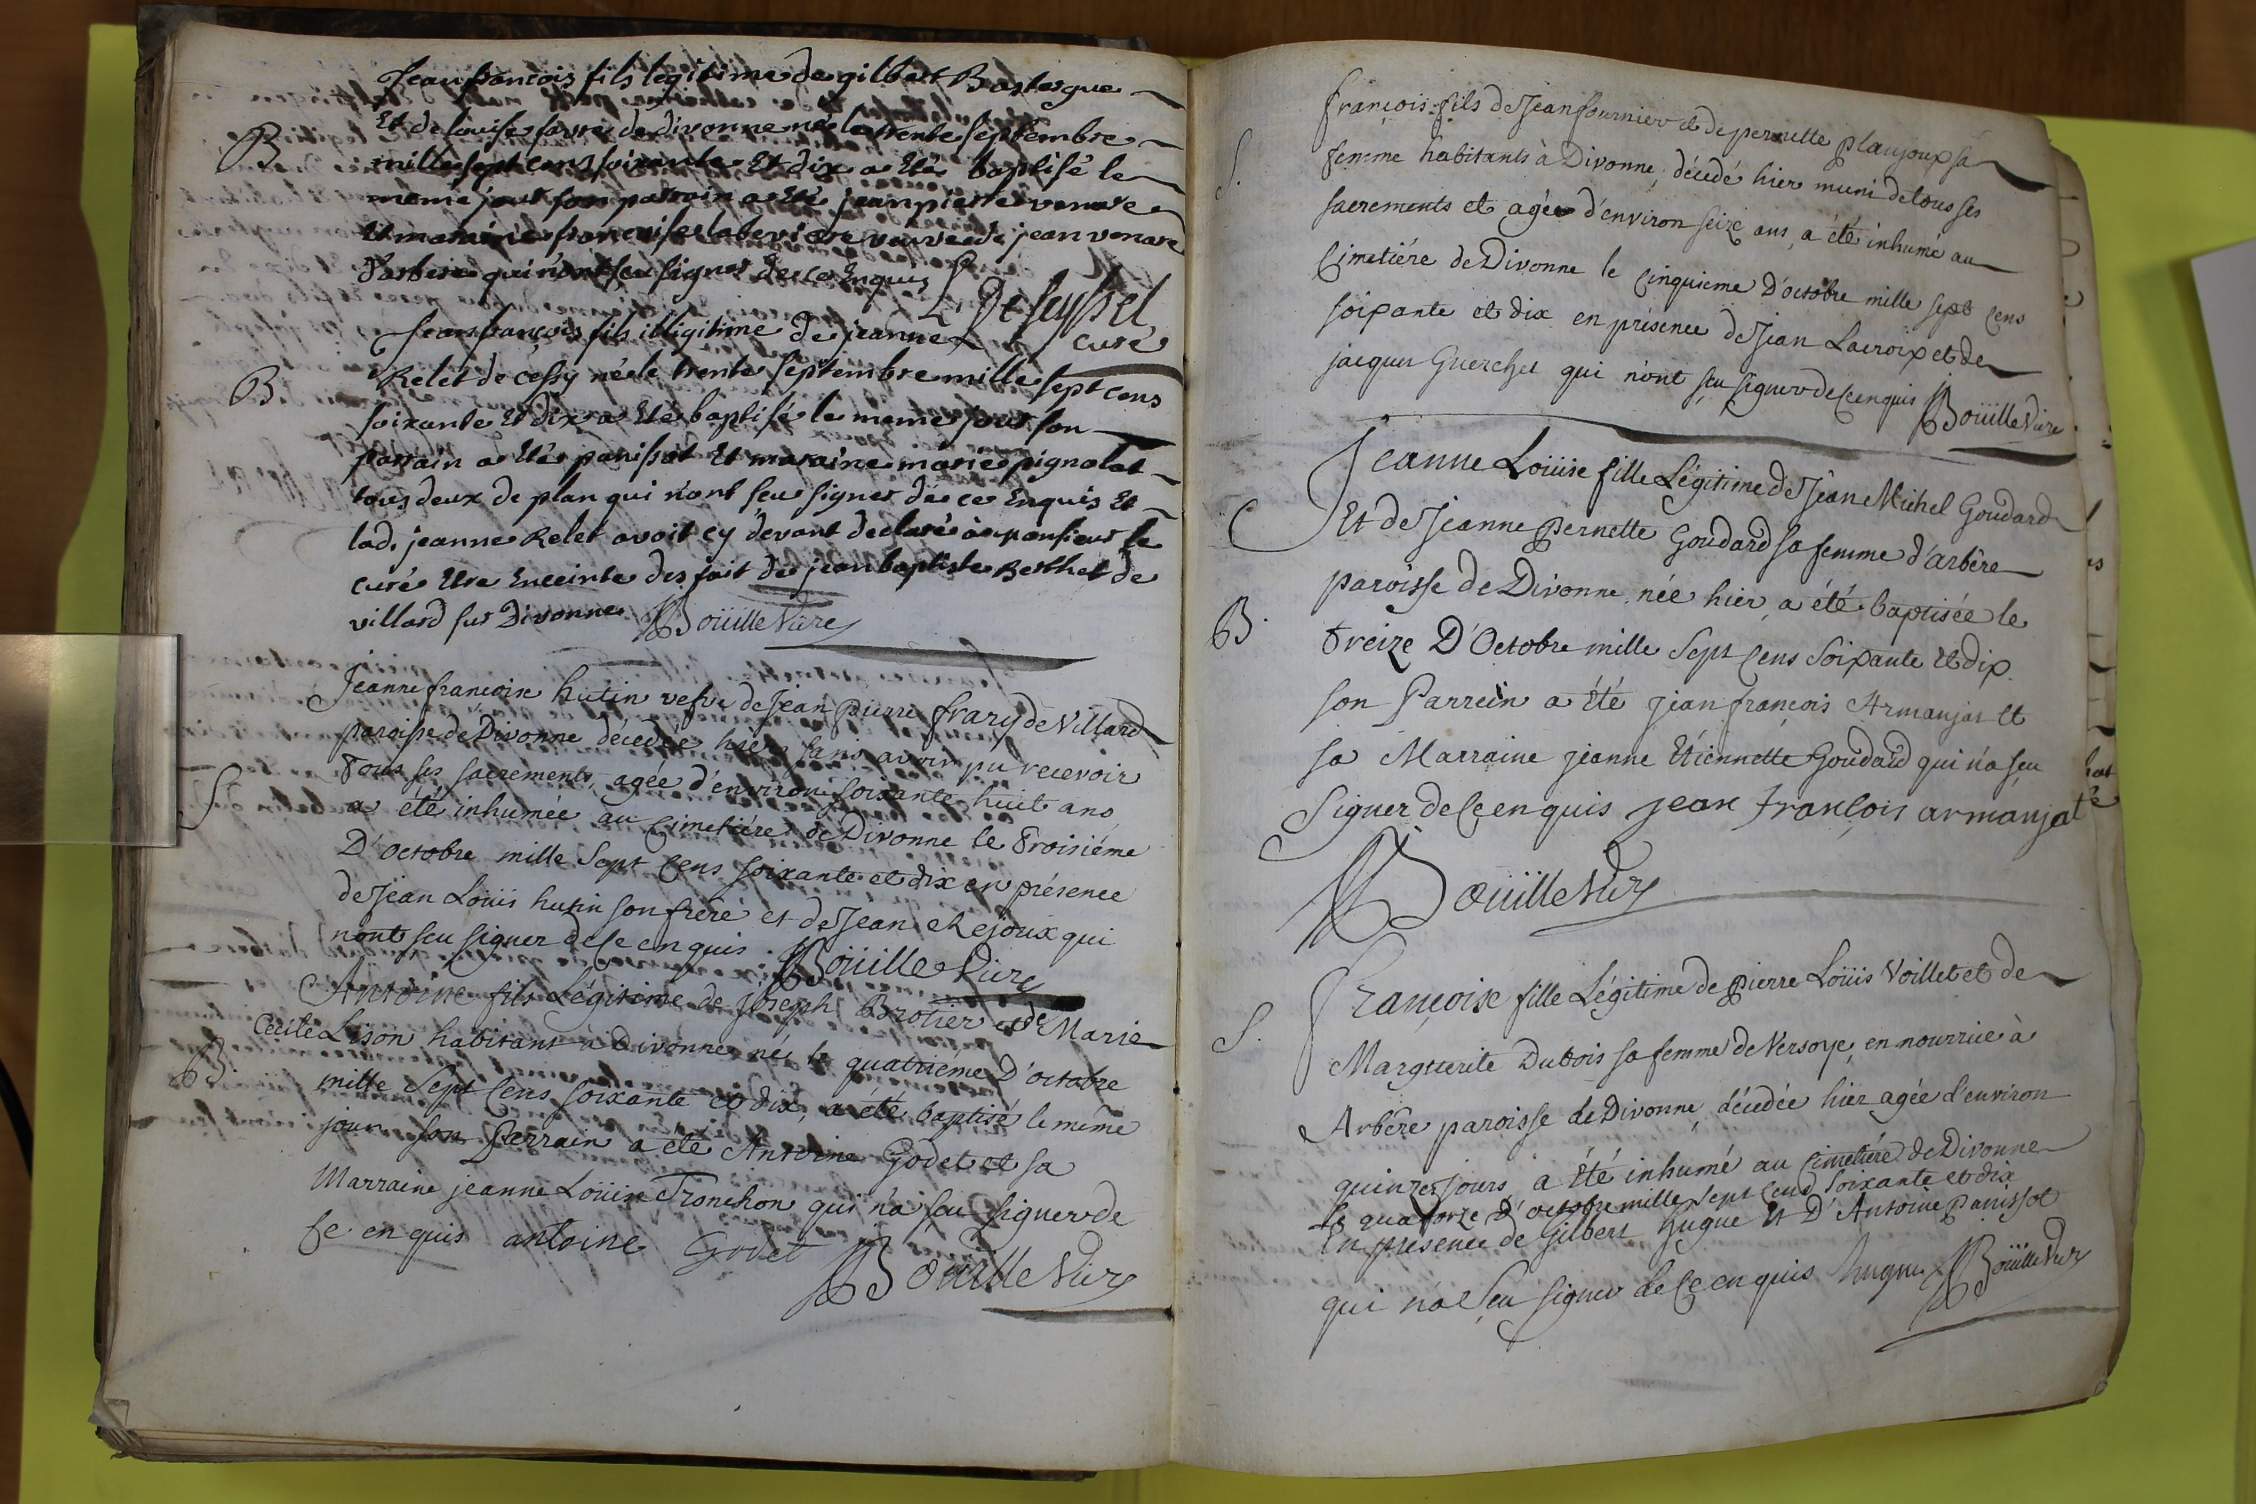 Jean francois fils legitime de gilbert Bastergue
B
Et de louise favre de divonne né le trente septembre
mille sept cens soixante Et dix a Eté baptisé le
meme jour son parrain a Eté jean pierre venare
Et maraine francoise laberiere veuve de jean venare
d'arbere qui n'ont seu signer de ce Enquis
L. De Seyssel
curé
Jean francois fils illigitime de jeanne
B
Relet de cessy né le trente septembre mille sept cens
soixante Et dix a Eté baptisé le meme jour son
parrain a Eté panissot Et maraine marie pignolat
tous deux de plan qui n'ont seu signer de ce Enquis Et
lad. jeanne Relet avoit cy devant declaré à monsieur le
curé Etre Enceinte des fait de jean baptiste Berthet de
villard sur Divonne BoüilleVire
Jeanne françoise hutin vefve de Jean pierre frary de Villard
paroisse de Divonne décédée hier sans avoir pu recevoir
S
Tous ses sacrements, agée d'environ soixante huit ans
a été inhumée au Cimetiére de Divonne le Troisiéme
D'octobre mille Sept Cens soixante et dix en présence
de Jean Loüis hutin son frere et de Jean chejoux qui
n'ont seu signer de Ce enquis. BoüilleVire
Antoine fils Légitime de joseph Brotier et de Marie
Cecile Lison habitant à Divonne né le quatriéme D'octobre
B.
mille Sept Cens soixante et dix, a été baptisé le même
jour son Parrain a été Antoine Godet et sa
Marraine jeanne Loüise Tronchon qui n'a seu signer de
Ce enquis antoine Godet BoüilleVire
françois fils de Jean fournier et de pernette planjoux sa
S.
femme habitants à Divonne, décédé hier muni de tous ses
sacrements et agée d'environ seize ans, a été inhumé au
Cimetiére de Divonne le Cinquieme D'octobre mille sept Cens
soixante et dix en présence de Jean Lacroix et de
jacques Guerchet qui n'ont seu signer de Ce enquis BoüilleVire
Jeanne Loüise fille Légitime de Jean Michel Goudard
C
Et de Jeanne Pernette Goudard sa femme d'arbêre
paroisse de Divonne née hier, a été baptisée le
B.
Treize D'Octobre mille Sept Cens Soixante Et dix.
son Parrein a été jean françois Armanjat Et
sa Marraine jeanne Etiennette Goudard qui n'a seu
Signer de Ce enquis jean françois armanjat
BoüilleVire
Françoise fille Légitime de Pierre Loüis Voillet et de
S.
Margueritte Dubois sa femme de Versoye, en nourrice à
Arbêre paroisse de Divonne, décédée hier agée d'environ
quinze jours, a été inhumé au Cimetiére de Divonne
le quatorze d'octobre mille Sept Cens soixante et dix
En présence de Gilbert Hugue Et D'Antoine Panissot
qui n'a Seu signer de Ce enquis hugue BoüilleVire